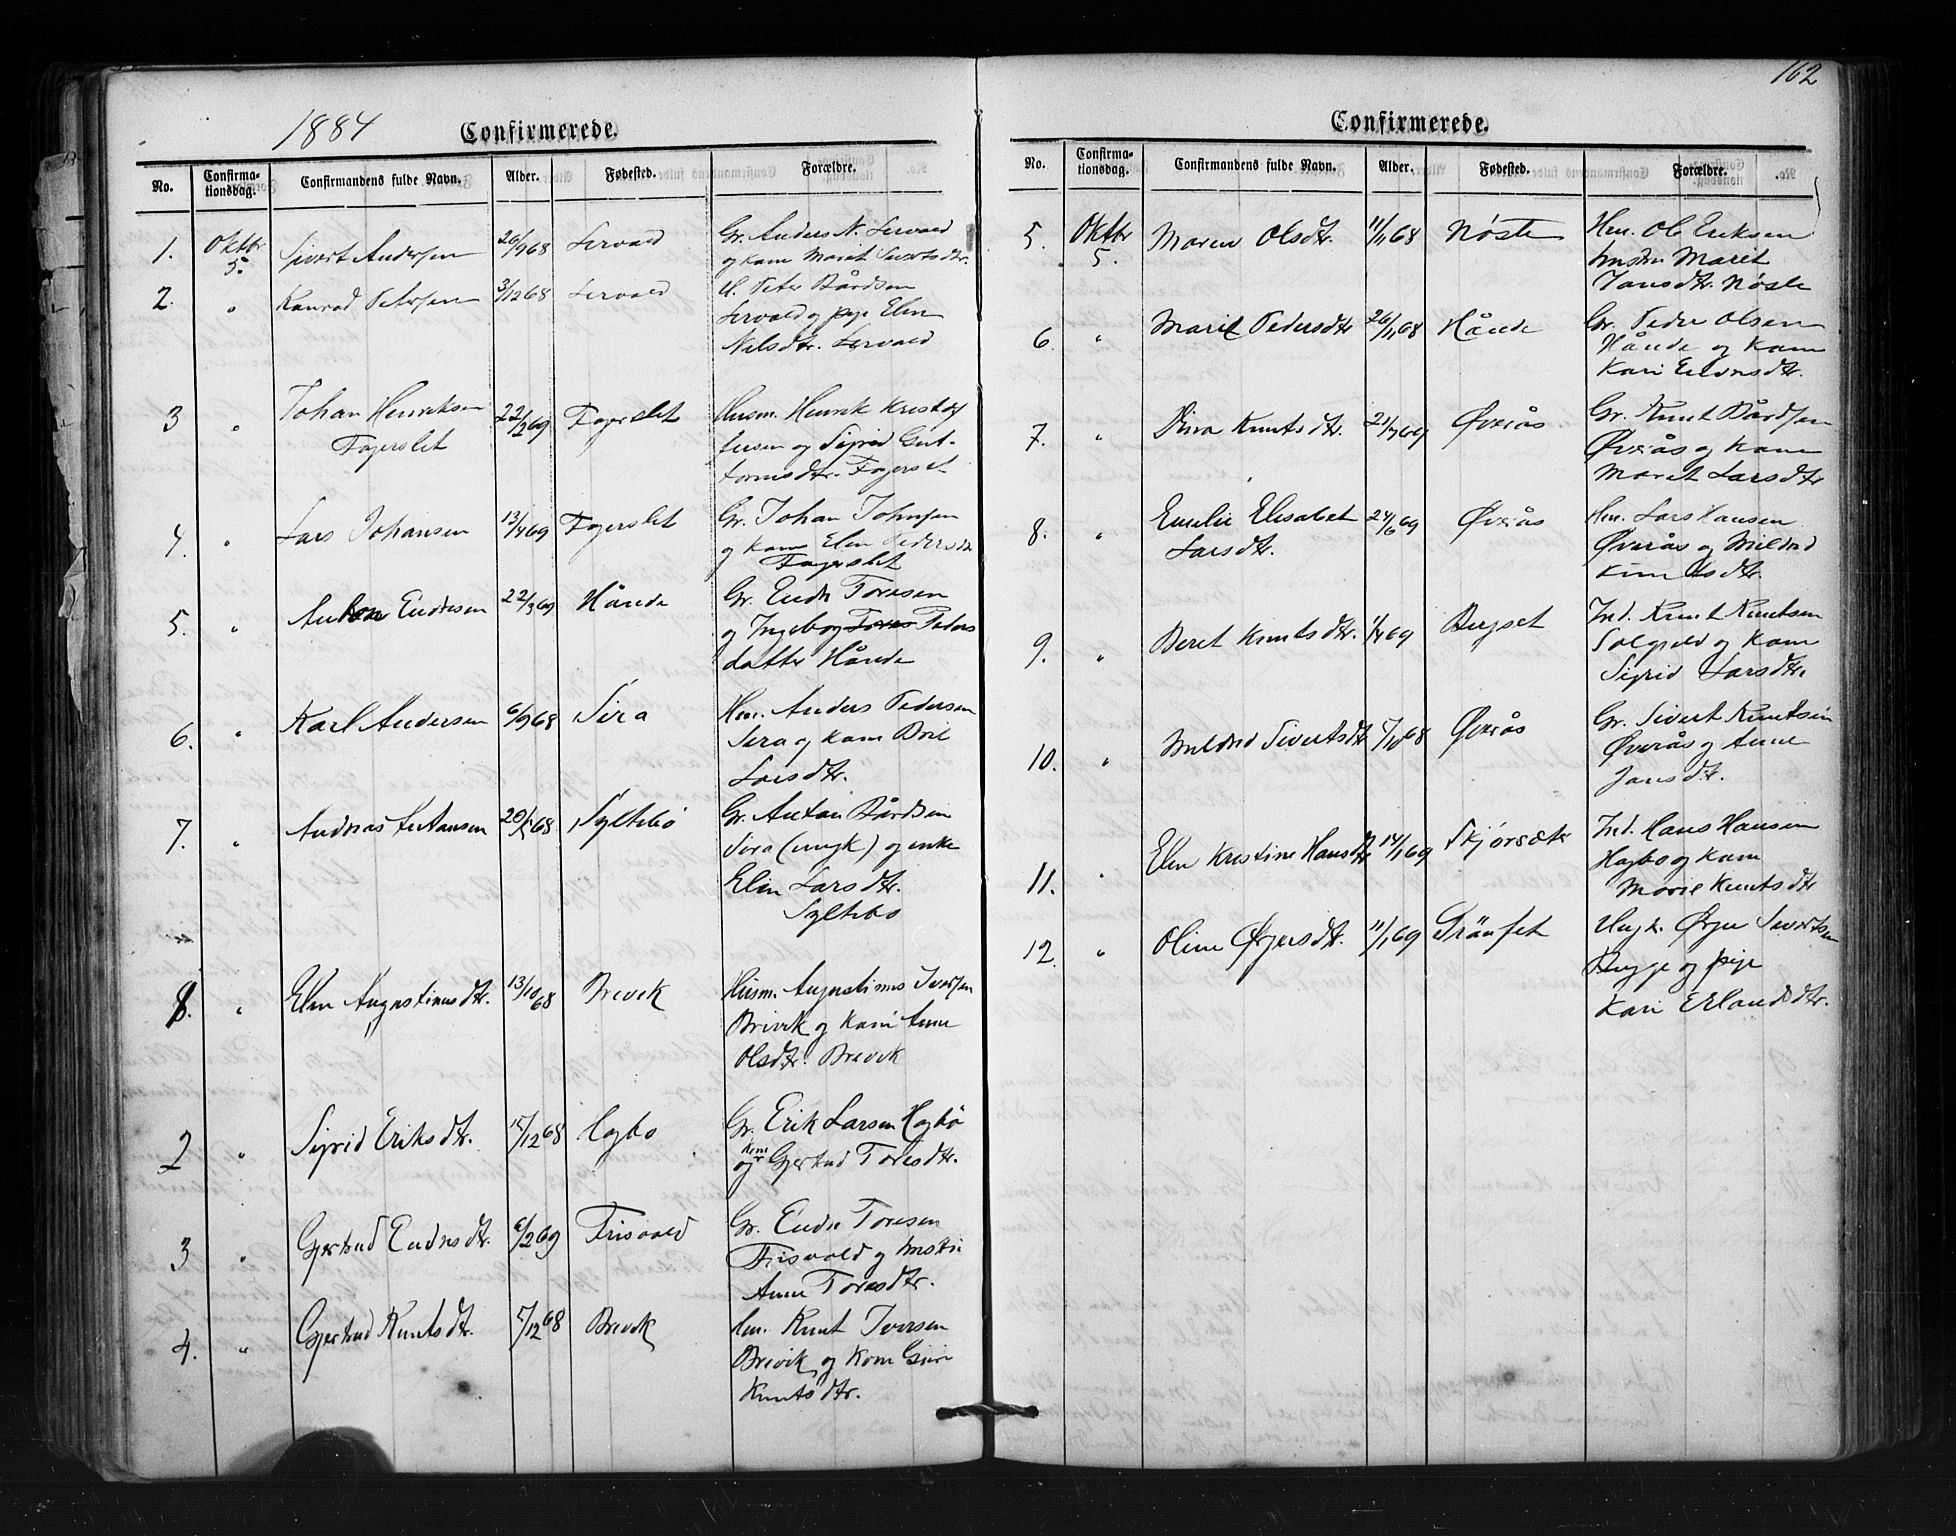 1884
Confirmerede.
No. Confirma-tionsdag. Confirmandens fulde Navn. Alder. Fødested. Forældre.
1. Oktbr 5. Sivert Andersen 26/9 68 Lervold Gr. Anders N. Lervold
og kone Marit Sivertsdtr.
2. " Konrad Petersen 3/12 68 Lervold Peter Bårdsen
Lervold og pige Elen
Nilsdtr. Lervold
3 " Johan Henriksen
Fagerslet 22/2 69 Fagerslet Husm. Henrik Kristof
fersen og Sigrid Gut-
tormsdtr. Fagerslet
4. " Lars Johansen 13/4 69 Fagerslet Gr. Johan Johnsen
og kone Elen Pedersdtr
Fagerslet
5. " Anton Endresen 22/3 69 Hånde Gr. Endre Toresen
og Ingebog Tores Peders
datter Hånde
6. " Karl Andersen 6/9 68 Sira Hm. Anders Pedersen
Sira og kone Boil
Larsdtr.
7. " Andreas Antonsen 20/5 68 Syltebø Gr. Anton Bårdsen
Sira (ungk) og enke
Elen Larsdtr.
Syltebø
1. " Elen Augustinusdtr. 13/10 68 Brevik Husm. Augustinus Iversen
Brivik og kone Anne
Olsdtr. Brevik
2 " Sigrid Eriksdtr. 15/12 68 Hogbo Gr. Erik Larsen Hogbø
og kone Gjertrud Toresdtr.
3 " Gjertrud Endresdtr. 6/2 69 Frisvold Gr. Endre Toresen
Frisvold og hustru
Anne Toresdtr.
4. " Gjertrud Knutsdtr. 7/12 68 Brevik Hm. Knut Iversen
Brevik og Kone Guri
Knutsdtr.
162
Confirmerede.
No. Confirma-tionsdag. Confirmandens fulde Navn. Alder. Fødested. Forældre.
5. Oktbr 5. Maren Olsdtr. 11/11 68 Nøste Hm. Ole Eriksen
hustru Marit
Jansdtr. Nøste
6. " Marit Pedersdtr 26/11 68 Hånde Gr. Peder Olsen
Hånde og kone
Kari Endresdtr.
7. " Knutsdtr. 21/7 69 Øverås Gr. Knut Bårdsen
Øverås og kone
Marit Larsdtr
8. " Emelie Elisabet
Larsdtr. 24/6 69 Øverås Hm. Lars Hansen
Øverås og Mildrid
Knutsdtr.
9. " Beret Knutsdtr. 1/4 69 Bergset Ind. Knut Knutsen
og kone
Sigrid Larsdtr.
10. " Mildrid Sivertsdtr 7/10 68 Øverås Gr. Sivert Knutsen
Øverås og Anne
Jansdtr.
11. " Elen Kristine Hansdtr 14/1 69 Skjørsæter Ind. Hans Hansen
Hogbo og kone
Marit Knutsdtr
12. " Oline Ørjersdtr. 11/1 69 Grönset Ungk. Ørjer Sivertsen
Rugge og pige
Kari Erlandsdtr.